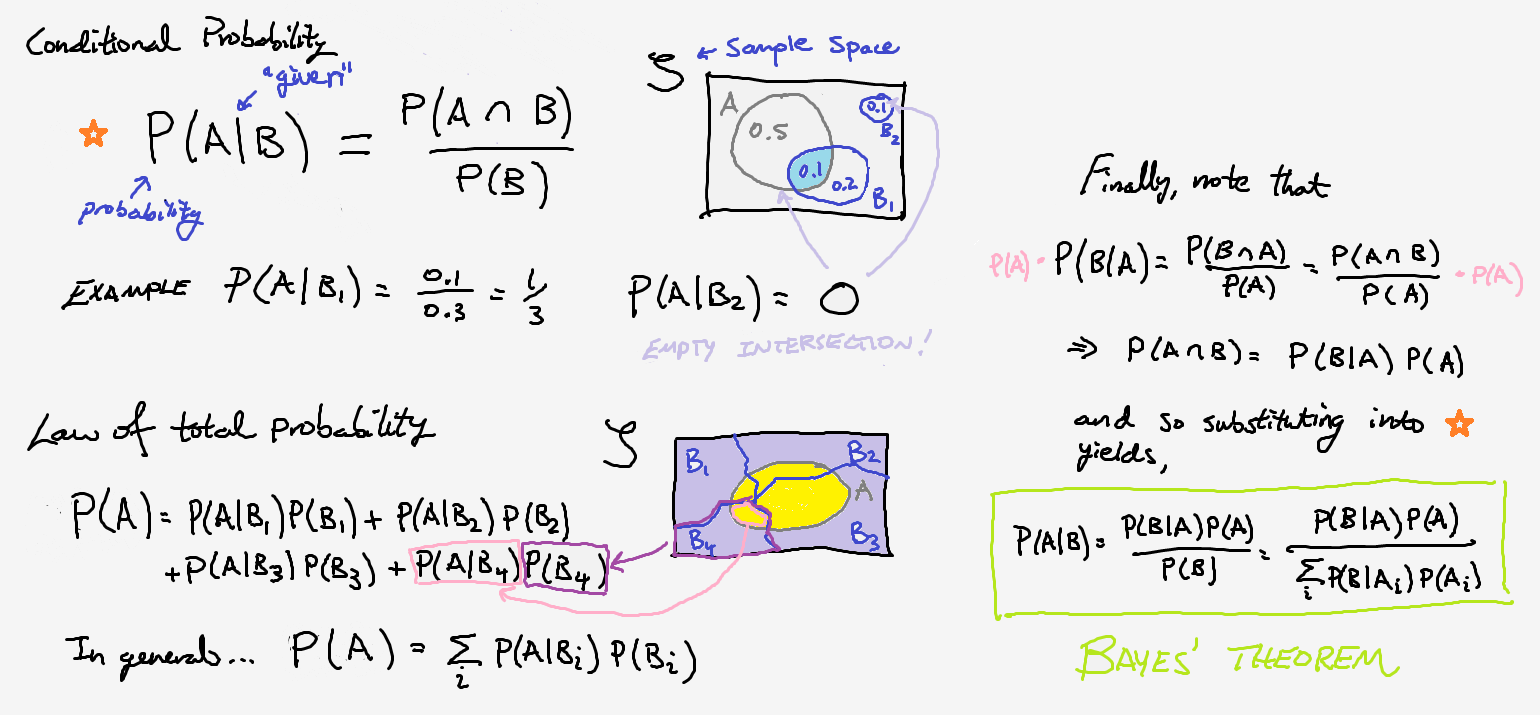 Conditional Probability
"given"
P(A|B) = P(A ∩ B) / P(B)
probability
S ← Sample Space
A
0.5
0.1
0.2
B₁
0.1
B₂
EXAMPLE P(A|B₁) = 0.1/0.3 = 1/3
P(A|B₂) = 0
EMPTY INTERSECTION!
Law of total probability
S
B₁
B₂
A
B₄
B₃
P(A) = P(A|B₁)P(B₁) + P(A|B₂)P(B₂)
+P(A|B₃)P(B₃) + P(A|B₄)P(B₄)
In general... P(A) = Σᵢ P(A|Bᵢ)P(Bᵢ)
Finally, note that
P(A)· P(B|A) = P(B∩A)/P(A) = P(A∩B)/P(A) ·P(A)
⇒ P(A∩B) = P(B|A) P(A)
and so substituting into ☆
yields,
P(A|B) = P(B|A)P(A)/P(B) = P(B|A)P(A)/Σᵢ P(B|Aᵢ)P(Aᵢ)
BAYES' THEOREM